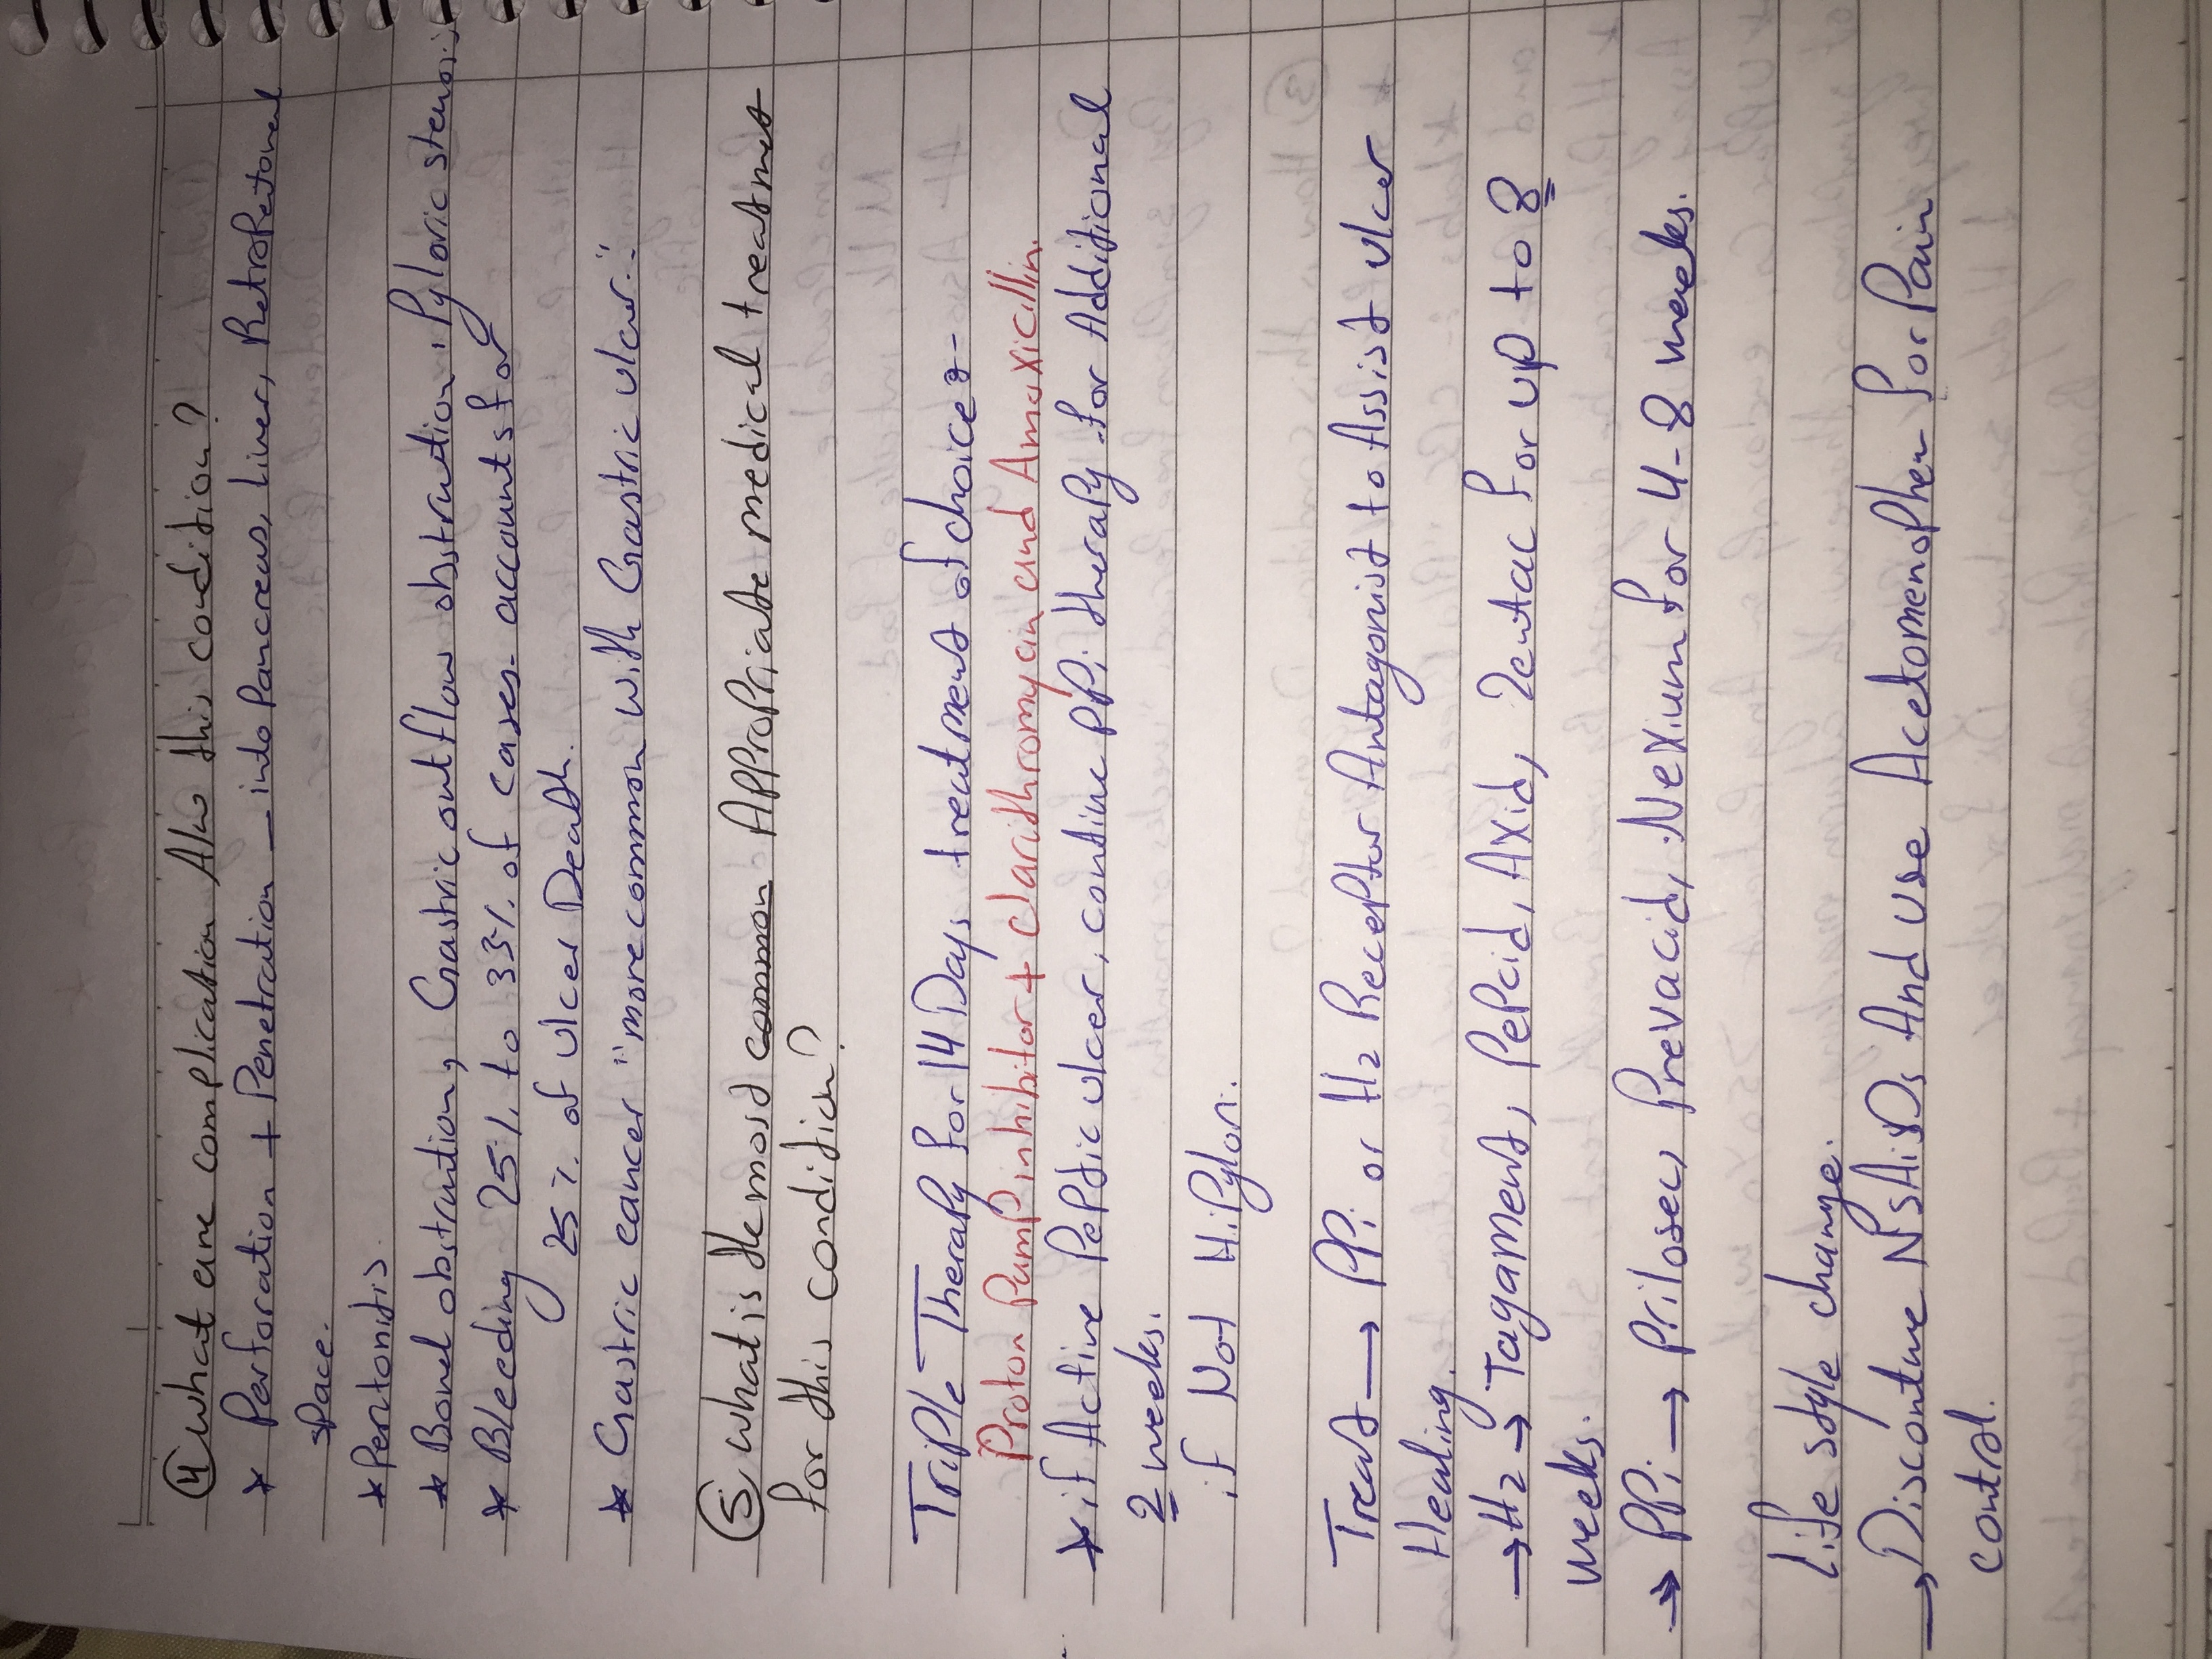 ④ What are complication Also this condition?
* Perforation + Penetration — into Pancreas, Liver, RetroPetonal
space.
* Peritonitis.
* Bowel obstruction, Gastric outflow obstruction, Pyloric stenosis
* Bleeding 25% to 33% of cases. accounts for
25% of ulcer Death.
* Gastric cancer "more common with Gastric ulcer."
⑤ what is the most common Appropriate medical treatment
for this condition?
Triple-Therapy for 14 Days treatment of choice:-
Proton Pump inhibitor + clarithromycin and Amoxicillin.
* if Active Peptic ulcer, continue PPi therapy for Additional
2 weeks.
if Not H.Pylori.
Treat → PPi or H2 Receptor Antagonist to Assist ulcer
Healing.
→ H2 → Tagament, Pepcid, Axid, Zentac for up to 8
weeks.
→ PPi → Prilosec, Prevacid, Nexium for 4-8 weeks.
Life style change.
→ Discontinue NSAiDs And use Acetomenophen for Pain
control.